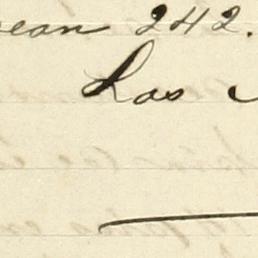 ean 242.
Los